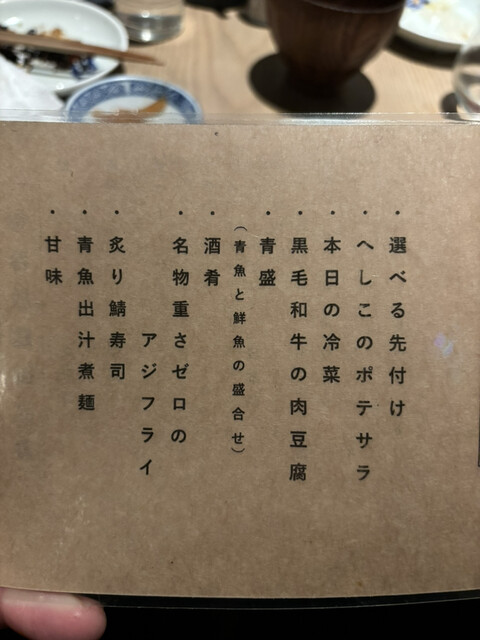 ・選べる先付け
・へしこのポテサラ
・本日の冷菜
・黒毛和牛の肉豆腐
・青盛
(青魚と鮮魚の盛合せ)
・酒肴
・名物重さゼロの
アジフライ
・炙り鯖寿司
・青魚出汁煮麺
・甘味